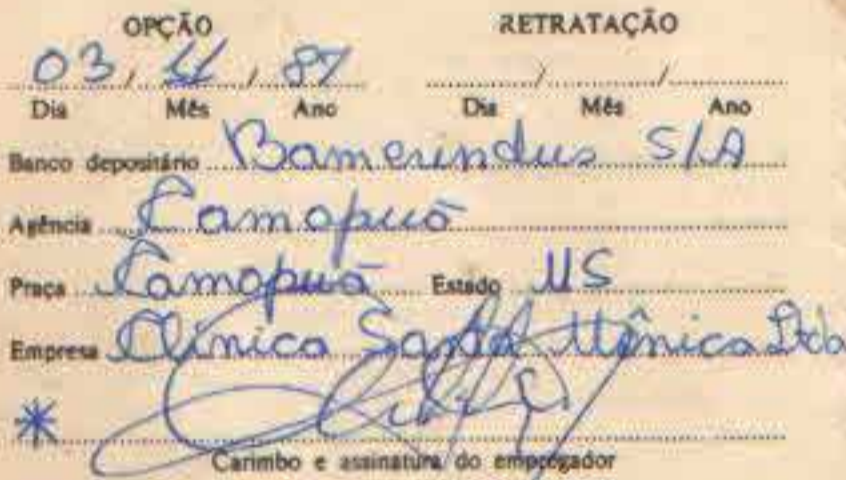 OPÇÃO RETRATAÇÃO
03 / 11 / 87 ........../........../..........
Dia Mês Ano Dia Mês Ano
Banco depositário Bamerindus S/A
Agência Camapuã
Praça Camapuã Estado MS
Empresa Clínica Santa Mônica Ltda
*
Carimbo e assinatura do empregador